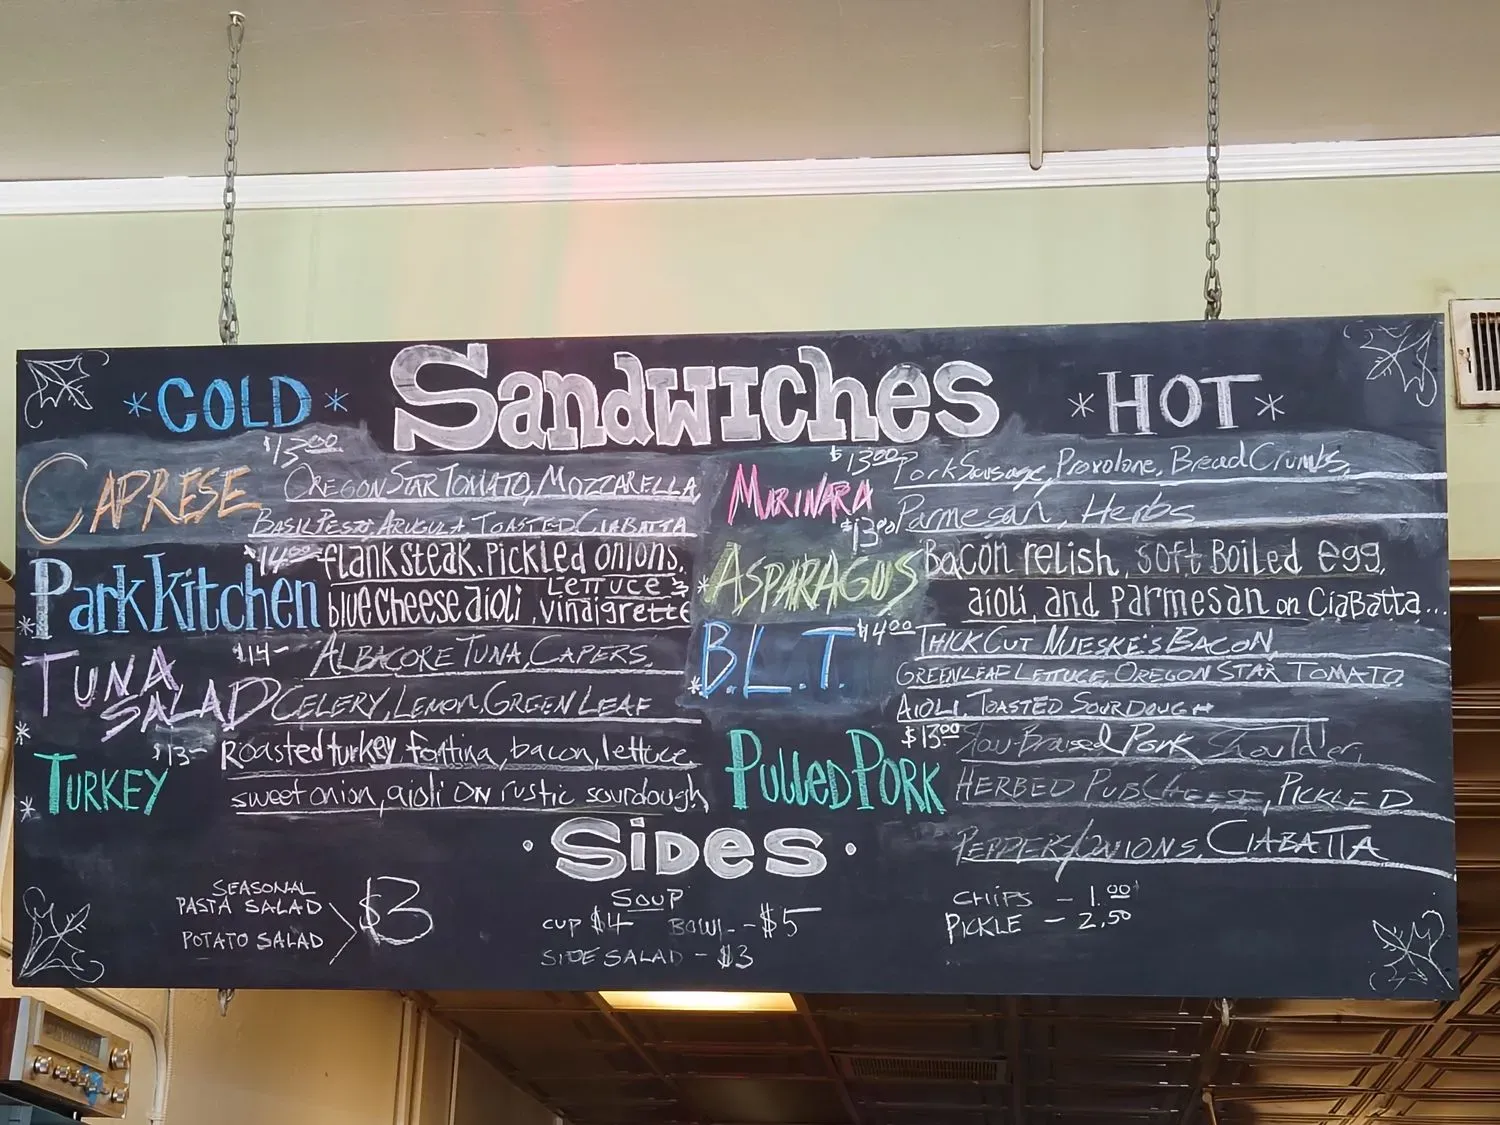 Sandwiches
*COLD*
$13.00
CAPRESE
OREGON STAR TOMATO, MOZZARELLA,
BASIL PESTO, ARUGULA TOASTED CIABATTA
$14.00
*Park Kitchen
flank steak, pickled onions,
blue cheese aioli, Lettuce & vinaigrette
$14-
*TUNA SALAD
ALBACORE TUNA, CAPERS,
CELERY, LEMON, GREEN LEAF
$13-
*TURKEY
Roasted turkey, fontina, bacon, lettuce
sweet onion, aioli ON rustic sourdough
*HOT*
$13.00
MARINARA
Pork Sausage, Provolone, Bread Crumbs,
Parmesan, Herbs
$13.00
*ASPARAGUS
Bacon relish, soft Boiled egg,
aioli, and parmesan on Ciabatta...
$14.00
*B.L.T.
THICK CUT NUESKE'S BACON,
GREENLEAF LETTUCE, OREGON STAR TOMATO,
AIOLI, TOASTED SOURDOUGH
$13.00
PULLED PORK
Slow-Braised Pork Shoulder,
HERBED PUB CHEESE, PICKLED
PEPPER/ONIONS, CIABATTA
·SIDES·
SEASONAL
PASTA SALAD
POTATO SALAD
$3
SOUP
CUP $4 BOWL - $5
SIDE SALAD - $3
CHIPS - 1.00
PICKLE - 2.50